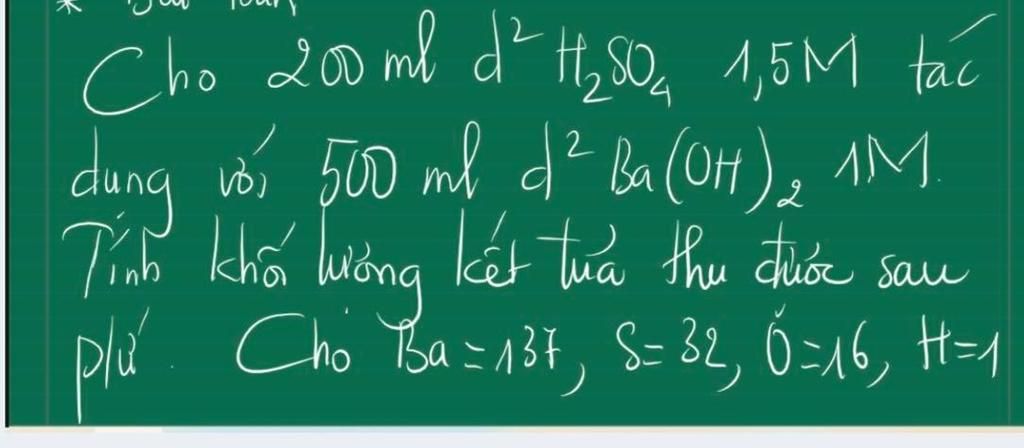 Cho 200 ml d² H₂SO₄ 1,5M tác
dụng với 500 ml d² Ba(OH)₂ 1M.
Tính khối lượng kết tủa thu được sau
p/ứ. Cho Ba=137, S=32, O=16, H=1